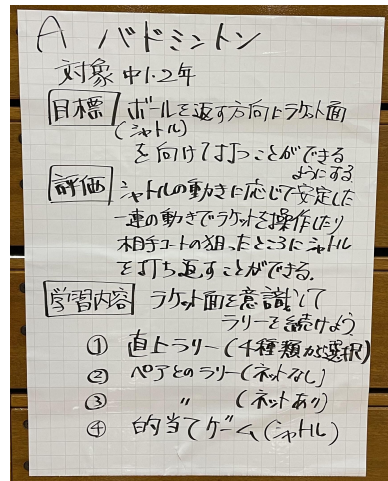 A バドミントン
対象 中1・2年
目標 ボールを返す方向にラケット面
(シャトル)
を向けて打つことができる
ようにする
評価 シャトルの動きに応じて安定した
一連の動きでラケットを操作したり
相手コートの狙ったところにシャトル
を打ち返すことができる.
学習内容 ラケット面を意識して
ラリーを続けよう
① 直上ラリー(4種類から選択)
② ペアとのラリー(ネットなし)
③ 〃 (ネットあり)
④ 的当てゲーム(シャトル)